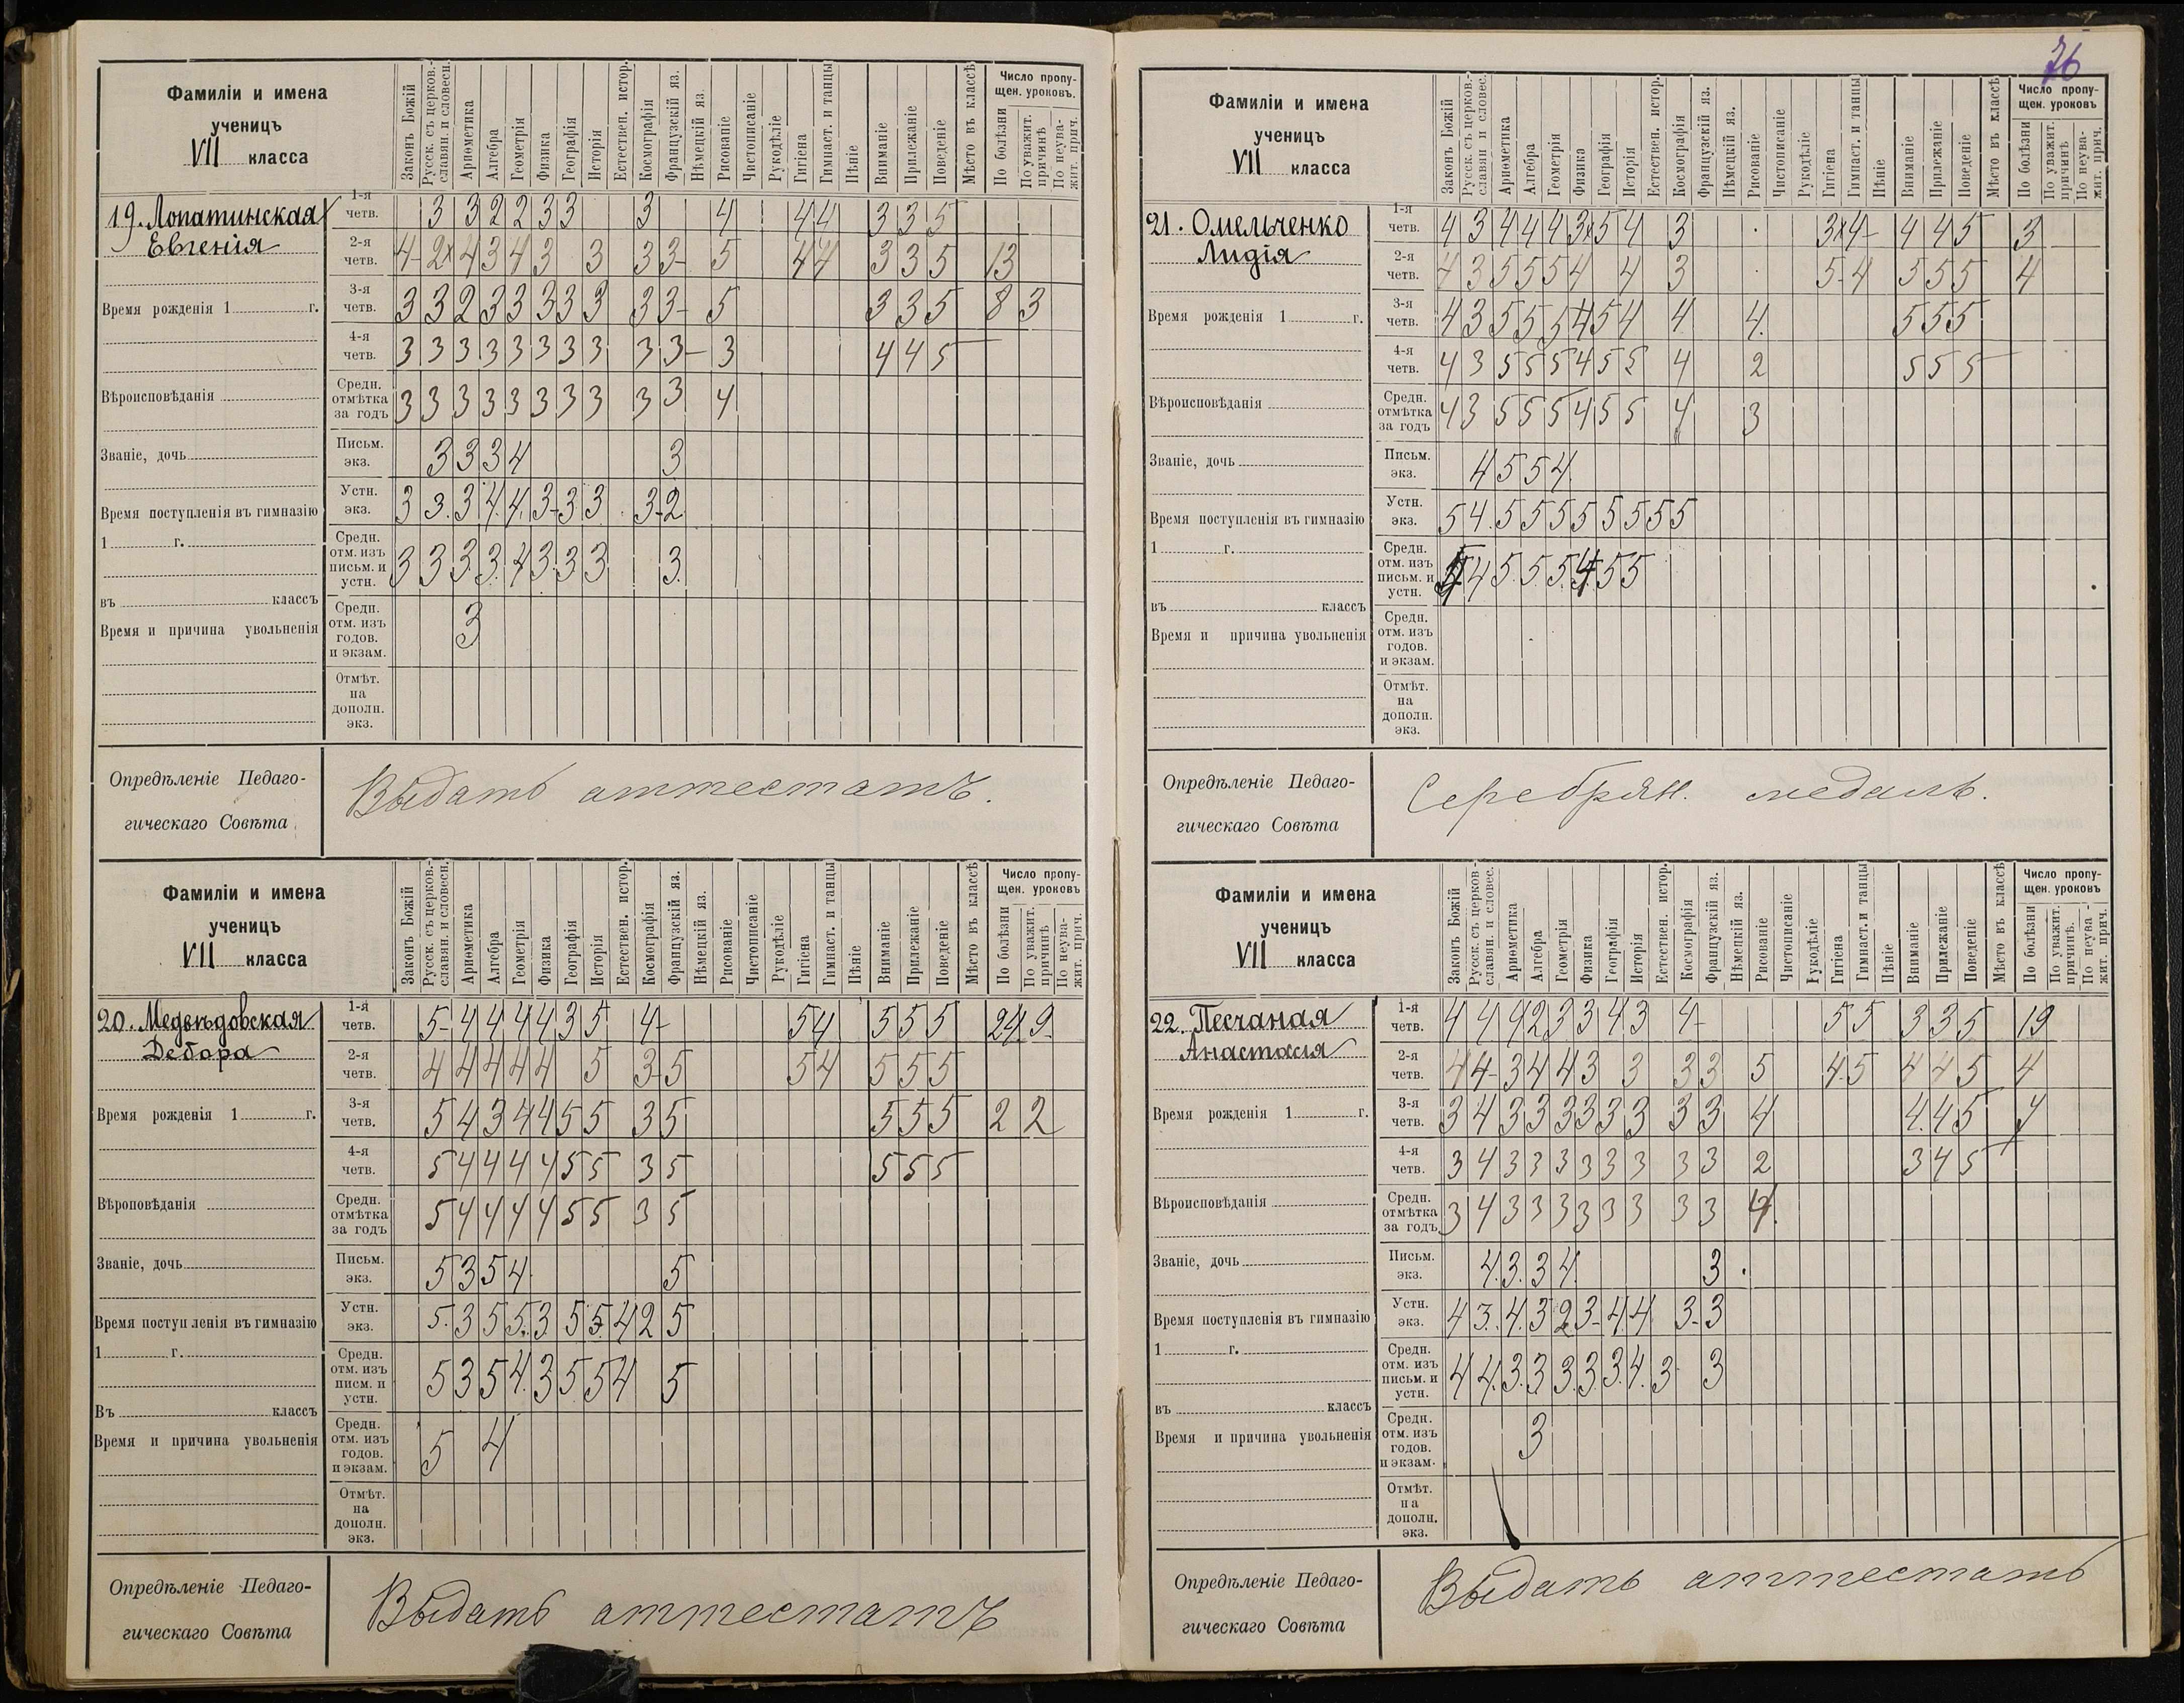 76
Фамиліи и имена
ученицъ
VII класса
Законъ Божій
Русск. съ церков.-
славян. и словесн.
Ариѳметика
Алгебра
Геометрія
Физика
Географія
Исторія
Естествен. истор.
Космографія
Французскій яз.
Нѣмецкій яз.
Рисованіе
Чистописаніе
Рукодѣліе
Гигіена
Гимнаст. и танцы
Пѣніе
Вниманіе
Прилежаніе
Поведеніе
Мѣсто въ классѣ
Число пропу-
щен. уроковъ.
По болѣзни
По уважит.
причинѣ
По неува-
жит. прич.
19. Лопатинская
Евгенія
Время рожденія 1 г.
Вѣроисповѣданія
Званіе, дочь
Время поступленія въ гимназію
1 г.
въ классъ
Время и причина увольненія
1-я четв. 3 3 2 2 3 3 3 4 4 4 3 3 5
2-я четв. 4- 2x 4 3 4 3 3 3 3- 5 4 4 3 3 5 13
3-я четв. 3 3 2 3 3 3 3 3 3 3- 5 3 3 5 8 3
4-я четв. 3 3 3 3 3 3 3 3 3 3- 3 4 4 5
Средн. отмѣтка за годъ 3 3 3 3 3 3 3 3 3 3 4
Письм. экз. 3 3 3 4 3
Устн. экз. 3 3. 3 4. 4. 3- 3 3 3- 2
Средн. отм. изъ письм. и устн. 3 3 3 3. 4 3. 3 3 3.
Средн. отм. изъ годов. и экзам. 3
Отмѣт. на дополн. экз.
Опредѣленіе Педаго-
гическаго Совѣта
Выдать аттестатъ.
Фамиліи и имена
ученицъ
VII класса
Законъ Божій
Русск. съ церков.-
славян. и словесн.
Ариѳметика
Алгебра
Геометрія
Физика
Географія
Исторія
Естествен. истор.
Космографія
Французскій яз.
Нѣмецкій яз.
Рисованіе
Чистописаніе
Рукодѣліе
Гигіена
Гимнаст. и танцы
Пѣніе
Вниманіе
Прилежаніе
Поведеніе
Мѣсто въ классѣ
Число пропу-
щен. уроковъ
По болѣзни
По уважит.
причинѣ
По неува-
жит. прич.
20. Медвѣдовская
Дебора
Время рожденія 1 г.
Вѣроповѣданія
Званіе, дочь
Время поступленія въ гимназію
1 г.
Въ классъ
Время и причина увольненія
1-я четв. 5- 4 4 4 4 3 5 4- 5 4 5 5 5 24 9
2-я четв. 4 4 4 4 4 5 3- 5 5 4 5 5 5
3-я четв. 5 4 3 4 4 5 5 3 5 5 5 5 2 2
4-я четв. 5 4 4 4 4 5 5 3 5 5 5 5
Средн. отмѣтка за годъ 5 4 4 4 4 5 5 3 5
Письм. экз. 5 3 5 4 5
Устн. экз. 5. 3 5 5. 3. 5 5. 4 2 5
Средн. отм. изъ писм. и устн. 5 3 5 4. 3 5 5 4 5
Средн. отм. изъ годов. и экзам. 5 4
Отмѣт. на дополн. экз.
Опредѣленіе Педаго-
гическаго Совѣта
Выдать аттестатъ
Фамиліи и имена
ученицъ
VII класса
Законъ Божій
Русск. съ церков.-
славян и словес.
Ариѳметика
Алгебра
Геометрія
Физика
Географія
Исторія
Естествен. истор.
Космографія
Французскій яз.
Нѣмецкій яз.
Рисованіе
Чистописаніе
Рукодѣліе
Гигіена
Гимнаст. и танцы
Пѣніе
Вниманіе
Прилежаніе
Поведеніе
Мѣсто въ классѣ
Число пропу-
щен. уроковъ
По болѣзни
По уважит.
причинѣ
По неува-
жит. прич.
21. Омельченко
Лидія
Время рожденія 1 г.
Вѣроисповѣданія
Званіе, дочь
Время поступленія въ гимназію
1 г.
въ классъ
Время и причина увольненія
1-я четв. 4 3 4 4 4 3x 5 4 3 3x 4- 4 4 5 3
2-я четв. 4 3 5 5 5 4 4 3 5- 4 5 5 5 4
3-я четв. 4 3 5 5 5 4 5 4 4 4. 5 5 5
4-я четв. 4 3 5 5 5 4 5 5 4 2 5 5 5
Средн. отмѣтка за годъ 4 3 5 5 5 4 5 5 4 3
Письм. экз. 4 5 5 4.
Устн. экз. 5 4. 5 5 5 5 5 5 5 5
Средн. отм. изъ письм. и устн. 4 5 5. 5. 4 5 5
Средн. отм. изъ годов. и экзам.
Отмѣт. на дополн. экз.
Опредѣленіе Педаго-
гическаго Совѣта
Серебрян. медаль.
Фамиліи и имена
ученицъ
VII класса
Законъ Божій
Русск. съ церков-
славян. и словес.
Ариѳметика
Алгебра
Геометрія
Физика
Географія
Исторія
Естествен. истор.
Космографія
Французскій яз.
Нѣмецкій яз.
Рисованіе
Чистописаніе
Рукодѣліе
Гигіена
Гимнаст. и танцы
Пѣніе
Вниманіе
Прилежаніе
Поведеніе
Мѣсто въ классѣ
Число пропу-
щен. уроковъ
По болѣзни
По уважит.
причинѣ.
По неува -
жит. прич.
22. Песчаная
Анастасія
Время рожденія 1 г.
Вѣроисповѣданія
Званіе, дочь
Время поступленія въ гимназію
1 г.
въ классъ
Время и причина увольненія
1-я четв. 4 4 4 2 3 3 4 3 4- 5 5 3 3 5 19
2-я четв. 4 4- 3 4 4 3 3 3 3 5 4. 5 4 4 5 4
3-я четв. 3 4 3 3 3 3 3 3 3 3 4 4. 4 5
4-я четв. 3 4 3 3 3 3 3 3 3 3 2 3 4 5
Средн. отмѣтка за годъ 3 4 3 3 3 3 3 3 3 3 4.
Письм. экз. 4. 3. 3 4. 3
Устн. экз. 4 3. 4. 3 2 3- 4 4 3- 3
Средн. отм. изъ письм. и устн. 4 4. 3. 3 3. 3. 3. 4. 3. 3
Средн. отм. изъ годов. и экзам. 3
Отмѣт. на дополн. экз.
Опредѣленіе Педаго-
гическаго Совѣта
Выдать аттестатъ